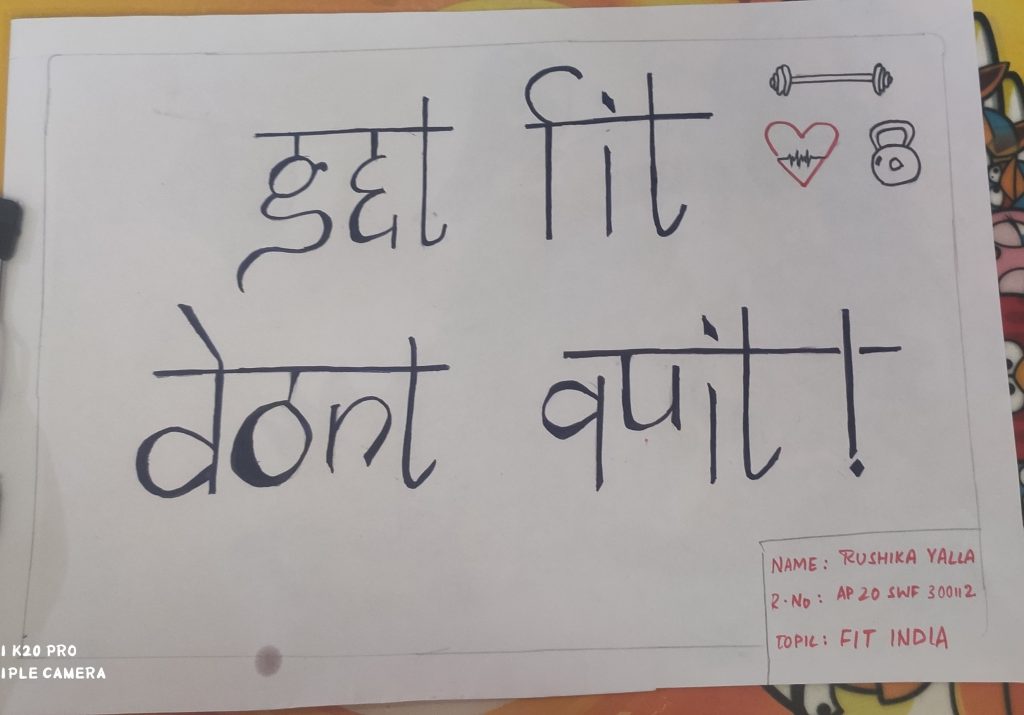 get fit
dont quit!
NAME: RUSHIKA YALLA
R.No: AP 20 SWF 300112
TOPIC: FIT INDIA
I K20 PRO
IPLE CAMERA